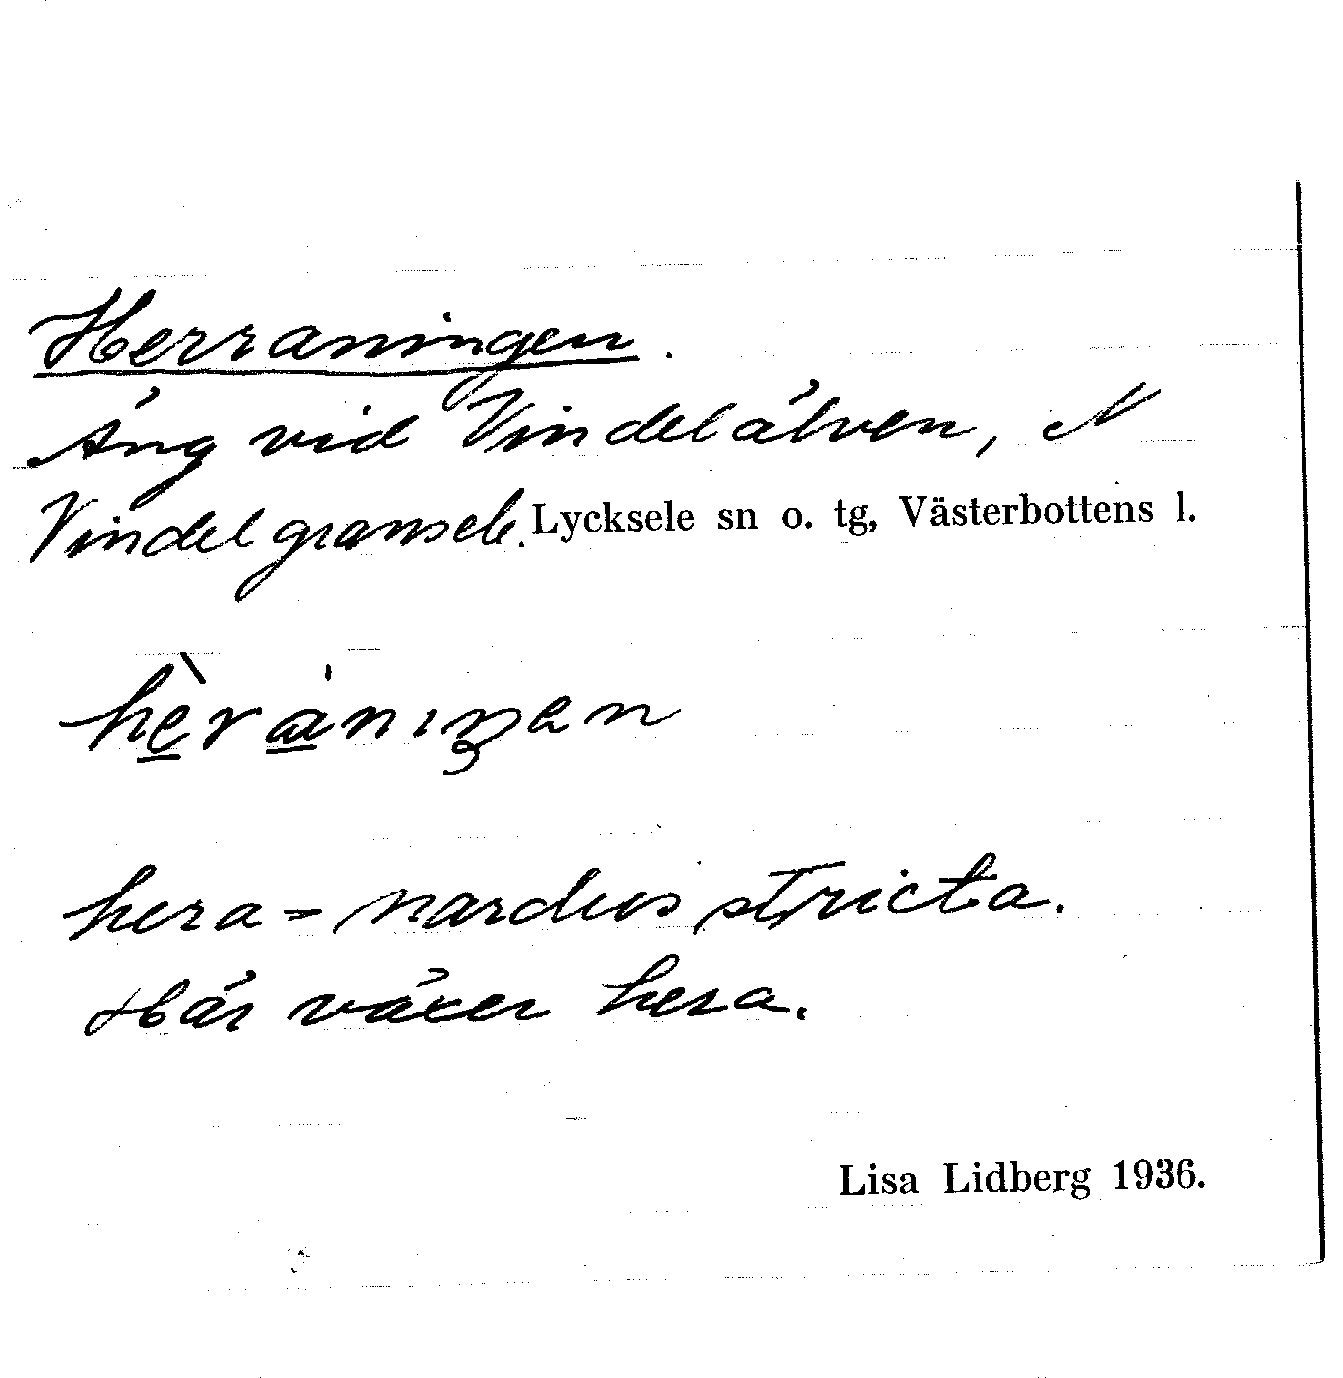 Herraningen.
Äng vid Vindelälven, N
Vindelgransele. Lycksele sn o. tg, Västerbottens l.
hèrànıŋen
hera = nardus stricta.
Här växer hera.
Lisa Lidberg 1936.